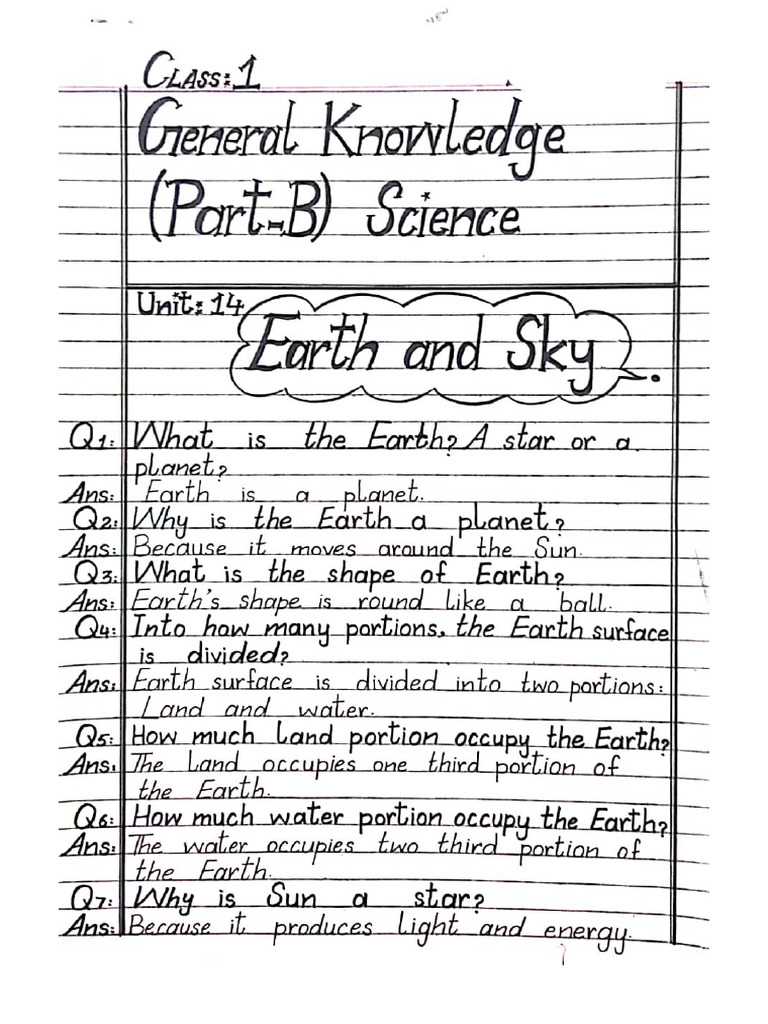 CLASS: 1
General Knowledge
(Part-B) Science
Unit: 14
Earth and Sky
Q1: What is the Earth? A star or a
planet?
Ans: Earth is a planet.
Q2: Why is the Earth a planet?
Ans: Because it moves around the Sun.
Q3: What is the shape of Earth?
Ans: Earth's shape is round like a ball.
Q4: Into how many portions, the Earth surface
is divided?
Ans: Earth surface is divided into two portions:
Land and water.
Q5: How much land portion occupy the Earth?
Ans: The land occupies one third portion of
the Earth.
Q6: How much water portion occupy the Earth?
Ans: The water occupies two third portion of
the Earth.
Q7: Why is Sun a star?
Ans: Because it produces light and energy.